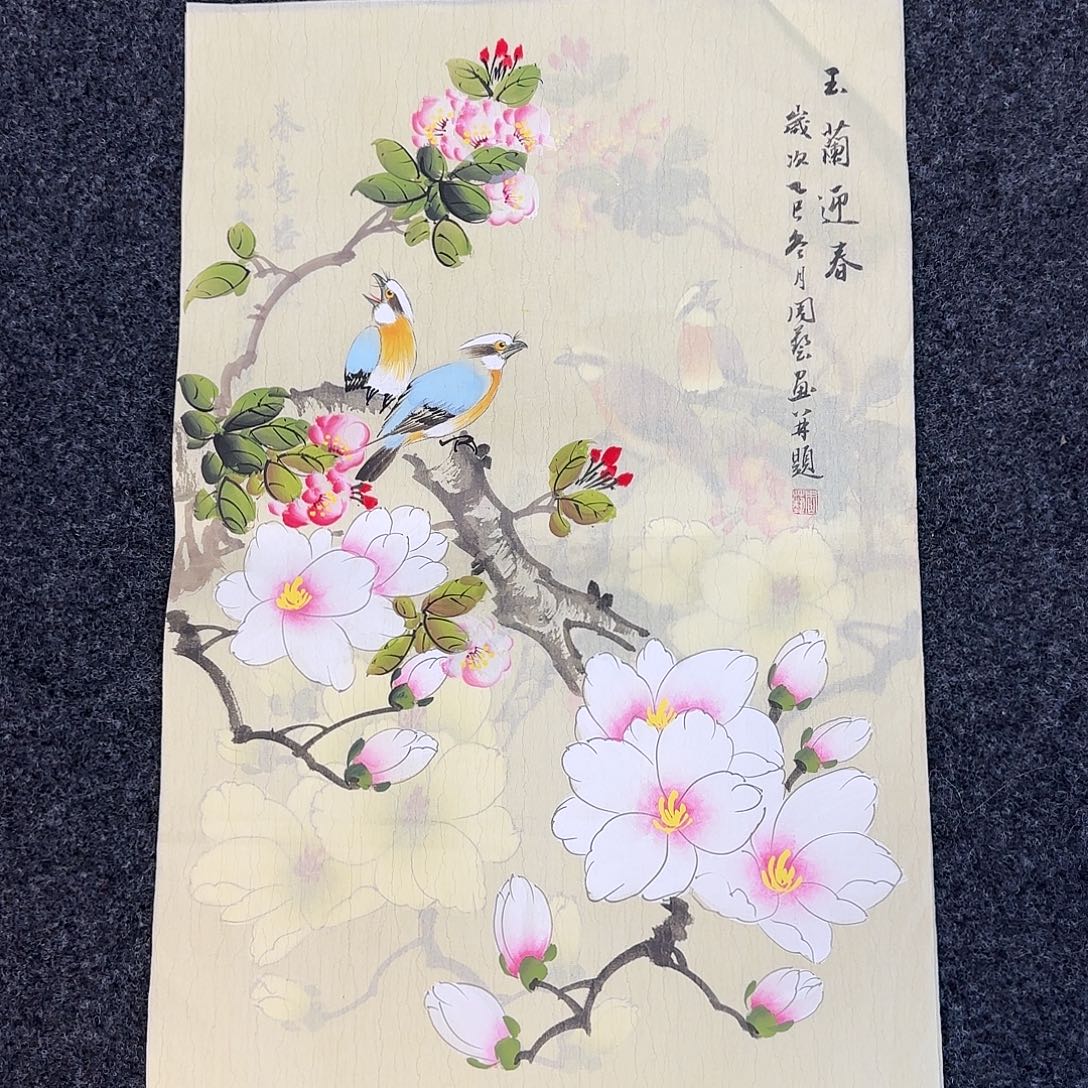 玉蘭迎春
歲次乙巳冬月周藝畫并題